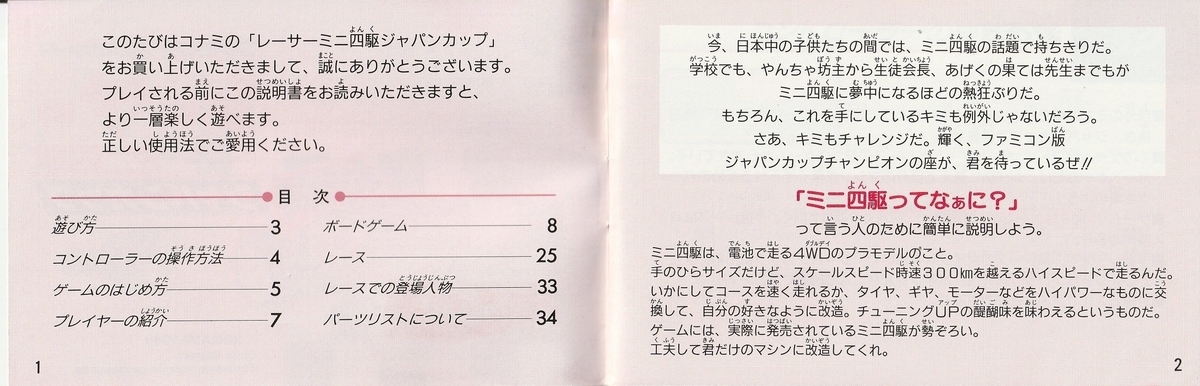 このたびはコナミの「レーサーミニ四駆ジャパンカップ」
をお買い上げいただきまして、誠にありがとうございます。
プレイされる前にこの説明書をお読みいただきますと、
より一層楽しく遊べます。
正しい使用法でご愛用ください。
目 次
遊び方 3
コントローラーの操作方法 4
ゲームのはじめ方 5
プレイヤーの紹介 7
ボードゲーム 8
レース 25
レースでの登場人物 33
パーツリストについて 34
1
今、日本中の子供たちの間では、ミニ四駆の話題で持ちきりだ。
学校でも、やんちゃ坊主から生徒会長、あげくの果ては先生までもが
ミニ四駆に夢中になるほどの熱狂ぶりだ。
もちろん、これを手にしているキミも例外じゃないだろう。
さあ、キミもチャレンジだ。輝く、ファミコン版
ジャパンカップチャンピオンの座が、君を待っているぜ!!
「ミニ四駆ってなぁに？」
って言う人のために簡単に説明しよう。
ミニ四駆は、電池で走る4WDのプラモデルのこと。
手のひらサイズだけど、スケールスピード時速300㎞を越えるハイスピードで走るんだ。
いかにしてコースを速く走れるか、タイヤ、ギヤ、モーターなどをハイパワーなものに交
換して、自分の好きなように改造。チューニングUPの醍醐味を味わえるというものだ。
ゲームには、実際に発売されているミニ四駆が勢ぞろい。
工夫して君だけのマシンに改造してくれ。
2